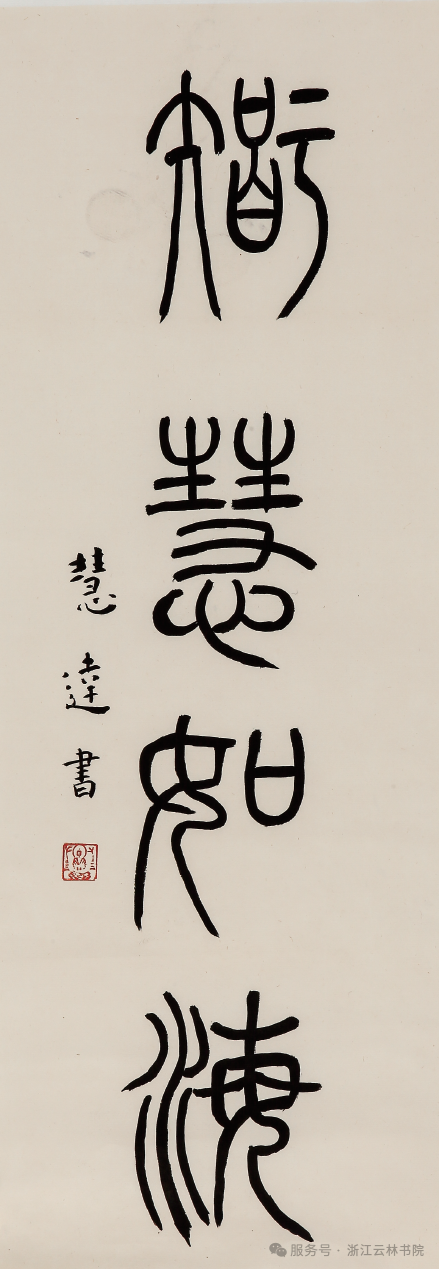 智慧如海
慧達書
服务号 · 浙江云林书院